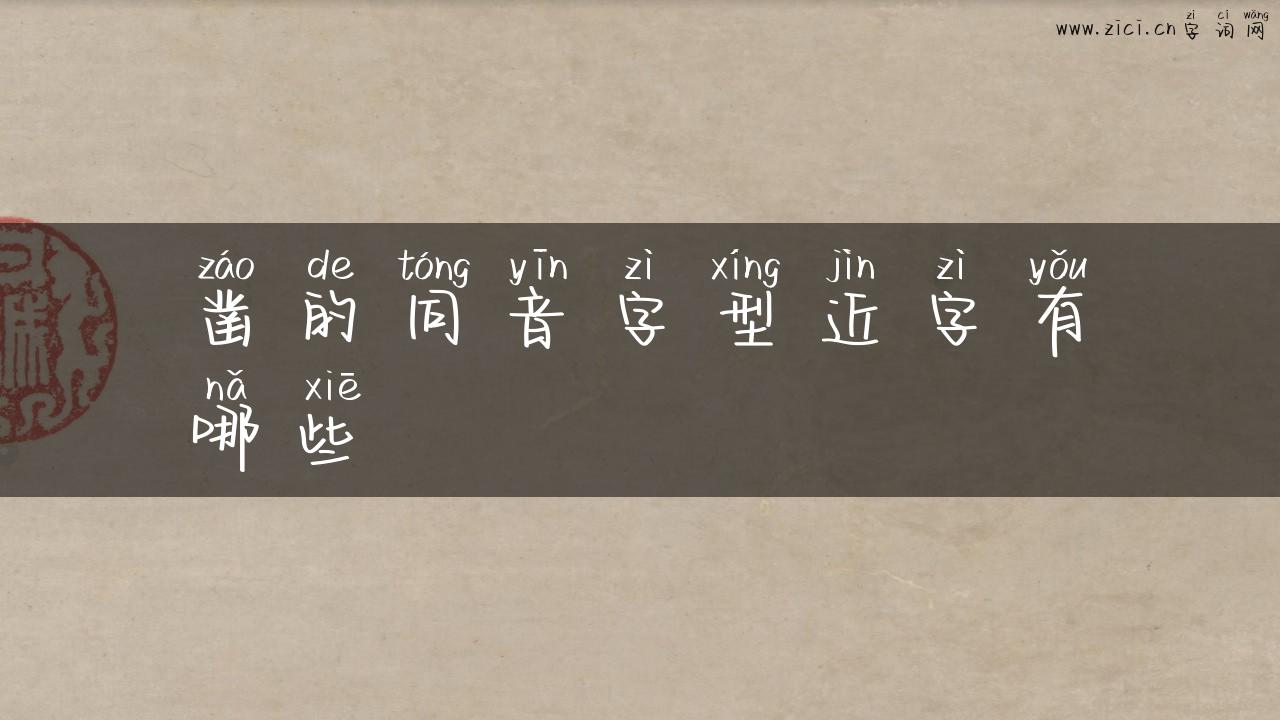 zì cí wǎng
www.zici.cn 字词网
záo de tóng yīn zì xíng jìn zì yǒu
凿的同音字型近字有
nǎ xiē
哪些